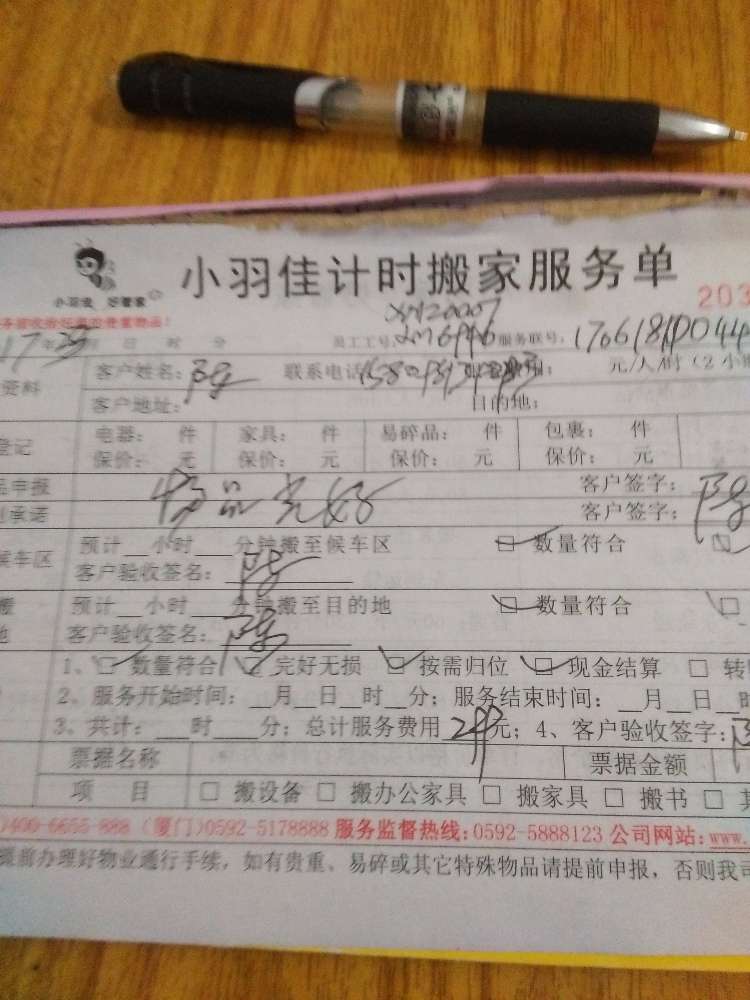 小羽佳 好管家
小羽佳计时搬家服务单
203
XM20007
17年 月 日 时 分 员工工号: XM6996 服务联号: 1706181004
资料 客户姓名: 陈 联系电话 元/人/时(2小
客户地址: 目的地:
登记 电器: 件 家具: 件 易碎品: 件 包裹: 件
保价: 元 保价: 元 保价: 元 保价: 元
品申报 物品完好 客户签字: 陈
承诺 客户签字:
候车区 预计__小时___分钟搬至候车区 数量符合
客户验收签名: 陈
搬 预计__小时___分钟搬至目的地 数量符合
地 客户验收签名: 陈
1、数量符合 完好无损 按需归位 现金结算 转
2、服务开始时间:__月__日__时__分; 服务结束时间:__月__日__时
3、共计:___时___分; 总计服务费用 元; 4、客户验收签字: 陈
票据名称 票据金额
项 目 搬设备 搬办公家具 搬家具 搬书 其
)400-6655-888 (厦门)0592-5178888 服务监督热线:0592-5888123 公司网站:www.
提前办理好物业通行手续, 如有贵重、易碎或其它特殊物品请提前申报, 否则我司